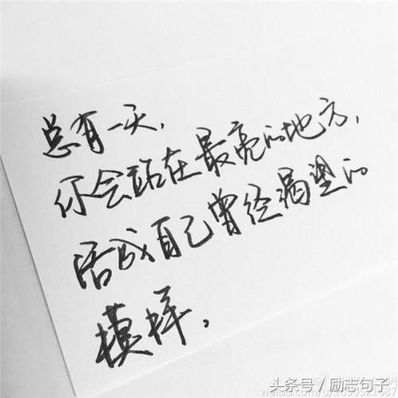 总有一天，
你会站在最亮的地方，
活成自己曾经渴望的
模样，
头条号／励志句子